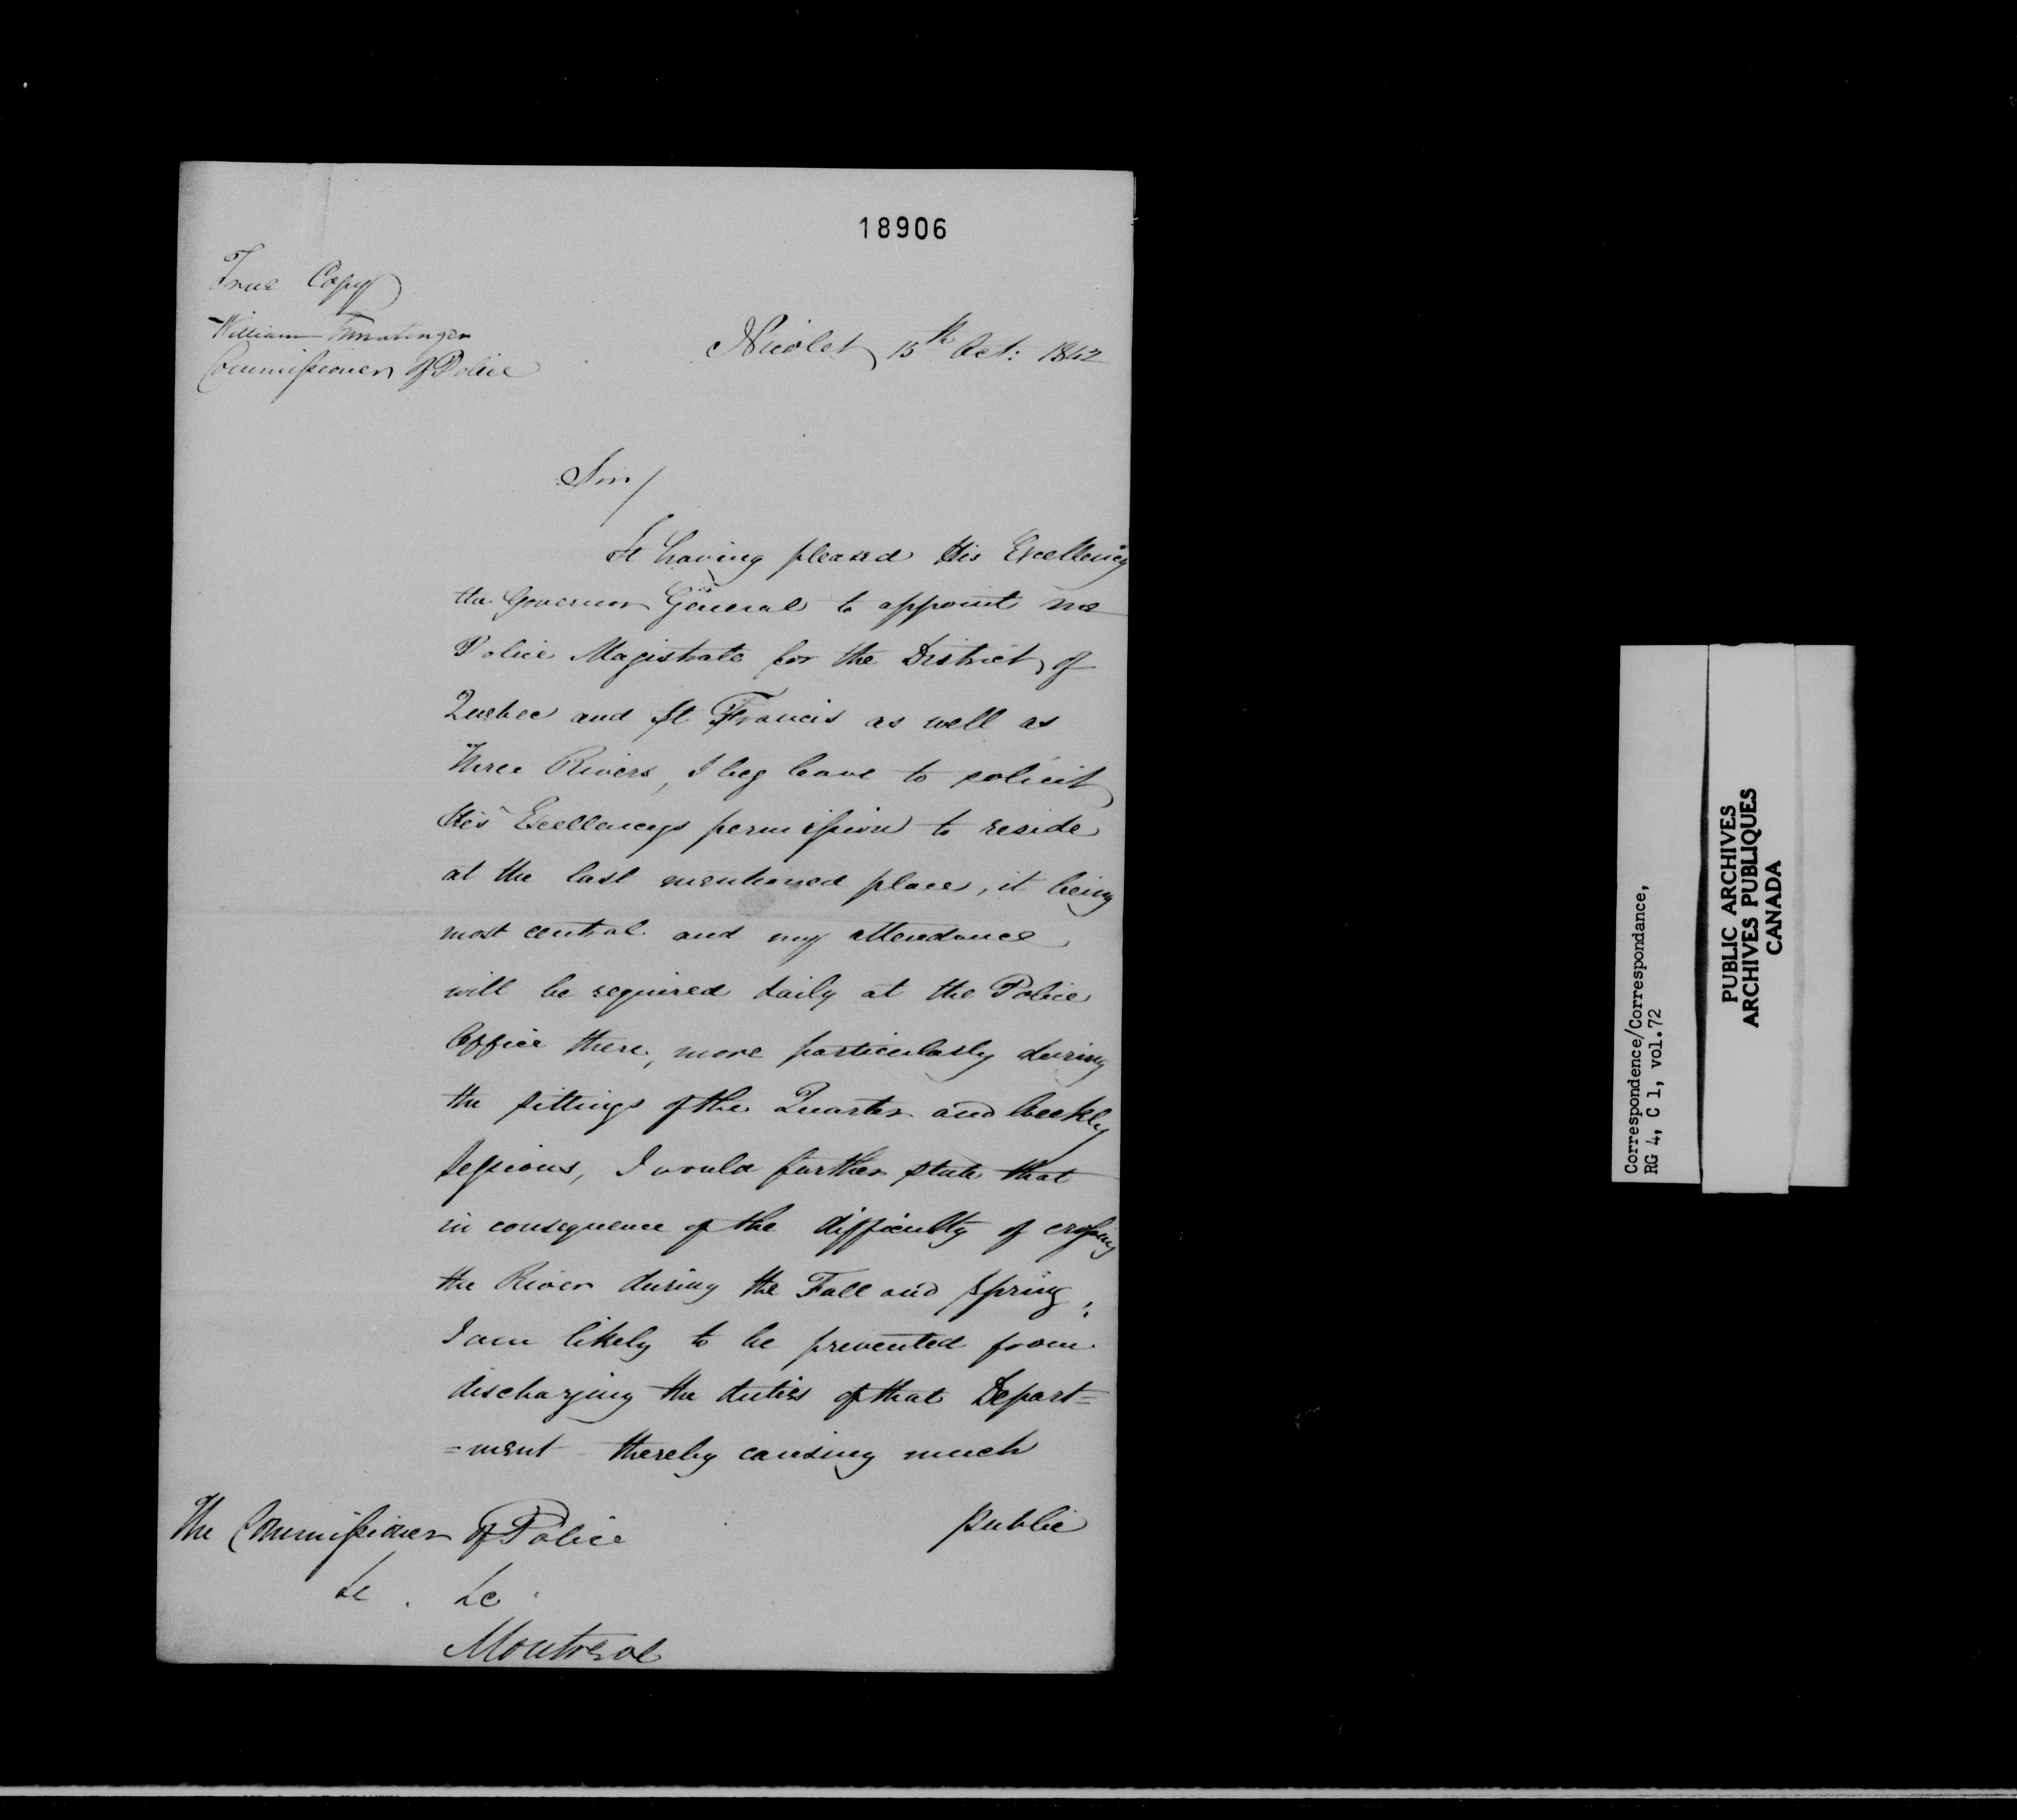 18906
True Copy
William Ermatinger
Commissioner of Police
Nicolet 15th Oct: 1842
Sir/
It having pleased His Excellency
the Governor General to appoint me
Police Magistrate for the District of
Quebec and St Francis as well as
Three Rivers, I beg leave to solicit
His Excellencys permission to reside
at the last mentioned place, it being
most central and my attendance
will be required daily at the Police
Office there, more particularly during
the sittings of the Quarter and Weekly
Sessions, I would further state that
in consequence of the difficulty of crossing
the River during the Fall and Spring,
I am likely to be prevented from
discharging the duties of that Depart=
=ment thereby causing much
public
The Commissioner of Police
&c . &c .
Montreal
Correspondence/Correspondance,
RG 4, C 1, vol.72
PUBLIC ARCHIVES
ARCHIVES PUBLIQUES
CANADA